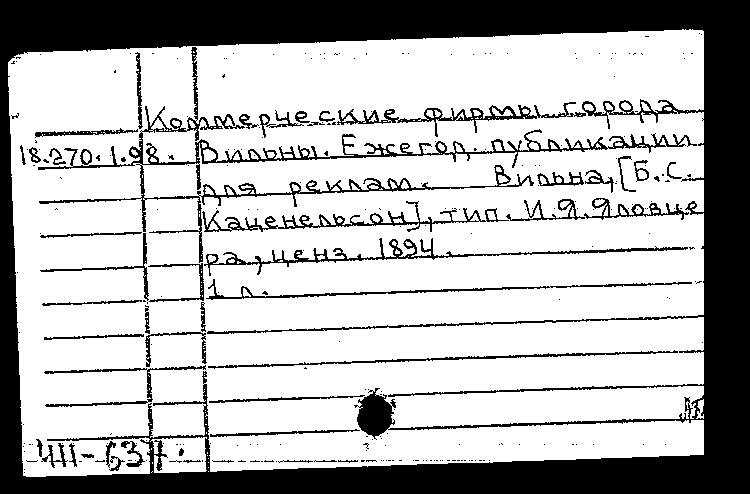 Коммерческие фирмы города
18.270.1.98. Вильны. Ежегод. публикации
для реклам. Вильна, [Б.С.
Каценельсон], тип. И.Я. Яловце
ра, ценз. 1894.
1 л.